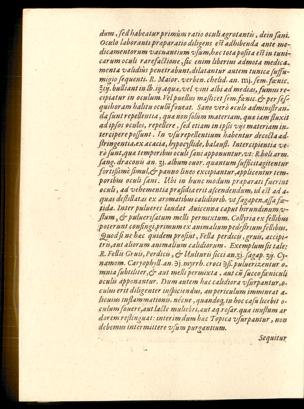 dum, sed habeatur primùm ratio oculi ægrotantis, dein sani.
Oculo laboranti præparatio diligens est adhibenda ante me-
dicamentorum vacuantium vsum, hæc tota posita est in tuni-
carum oculi rarefactione, sic enim liberius admota medica-
menta validius penetrabunt, dilatantur autem tunicæ suffu-
migio sequenti. R. Maior. verben. chelid. an. mj. sem. fænic.
bulliant in lb. aquæ, vel vini albi ad medias, fumus re-
cipiatur in oculum. Vel puellus masticet sem. fænic. & per ses-
quihoram halitu oculū foueat. Sano verò oculo administran-
da sunt repellentia, quæ non solum materiam, quæ iam fluxit
ad ipsos oculos, repellere, sed etiam in ipsis vijs materiam in-
tercipere possunt. In vsu repellentium habentur decocta ad-
stringentia ex acacia, hypocistide, balaust. Intercipientia ve-
rò sunt, quæ temporibus oculi sani apponuntur, vt R. bol. arm.
sang. draconis an. album ouor. quantum sufficit agitentur
fortissimè simul, & panno lineo excipiantur, applicentur tem-
poribus oculi sani. Vbi in hunc modum præparati fuerint
oculi, ad vehementia præsidia erit ascendendum, id est ad a-
quas destillatas ex aromatibus calidioribus vt sagapen. assa fæ-
tida. Inter pulueres laudat Auicenna caput hirundinum v-
stum, & puluerisatum melli permixtum. Collyria ex fellibus
poterunt confingi primum ex animalium pedestrium fellibus.
Quòd si nec hæc quidem prosint, Fella perdicis, gruis, accipi-
tris, aut aliorum animalium calidiorum. Exemplum sit tale:
R. Fellis Gruis, Perdicis, & Vulturis sicci an. sagap. Cy-
namom. Caryophyll. an. myrrh. croci puluerizentur o-
mnia subtiliter, & aut melli permixta, aut cū succo fæniculi
oculis apponantur. Dum autem hæc calidiora vsurpantur, o-
culi erit diligenter inspiciendus, an periculum immineat a-
licuius inflammationis, nécne, quandoq; in hoc casu licebit o-
culum fouere, aut lacte mulebri, aut aq. rosar. quæ iniustum ar
dorem restinguat: interim dum hæc Topica vsurpantur, non
debemus intermittere vsum purgantium.
Sequitur